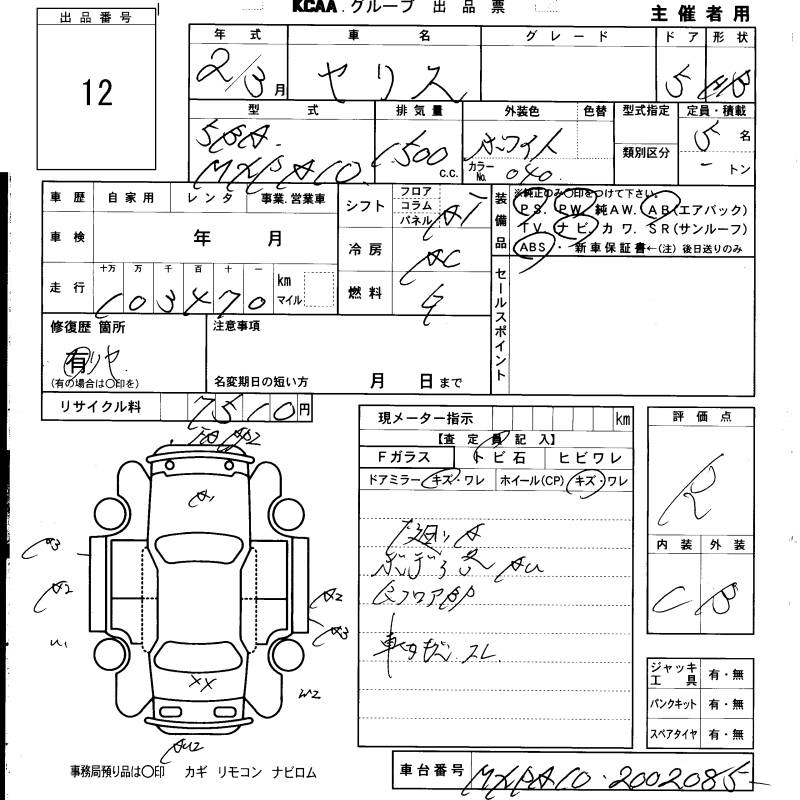 KCAA.グループ 出品票
主催者用
出品番号
12
年式 車名 グレード ドア 形状
2/3月 ヤリス 5 HB
型式 排気量 外装色 色替 型式指定 定員・積載
5BA 1500 c.c. ホワイト 5名
MXPA10 カラーNo. 040 類別区分 - トン
車歴 自家用 レンタ 事業.営業車
シフト フロア コラム パネル AT
装備品 ※純正のみ○印をつけて下さい。
PS. PW. 純AW. AB(エアバック)
TV. ナビ. カワ. SR(サンルーフ)
ABS ・ 新車保証書←(注) 後日送りのみ
車検 年 月
冷房 AC
走行 十万 万 千 百 十 一
103470 km マイル
燃料 ガ
セールスポイント
修復歴 箇所
有 リヤ
(有の場合は○印を)
注意事項
名変期日の短い方 月 日まで
リサイクル料 7510円
現メーター指示 km
【査定員記入】
Fガラス トビ石 ヒビワレ
ドアミラー キズ・ワレ ホイール(CP) キズ・ワレ
評価点
R
内装 外装
C B
A2
A1
A3
A2
A2
A3
U1
XX
W2
AU2
ボデー
フロア
スレ
ジャッキ工具 有・無
パンクキット 有・無
スペアタイヤ 有・無
事務局預り品は○印 カギ リモコン ナビロム
車台番号 MXPA10-2002085